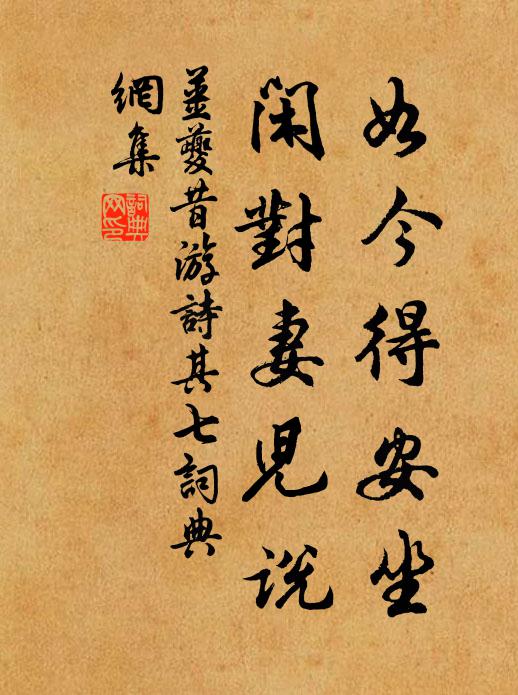 如今得安坐
閑對妻兒說
姜夔昔游詩其七詞典
網集
詞典網印